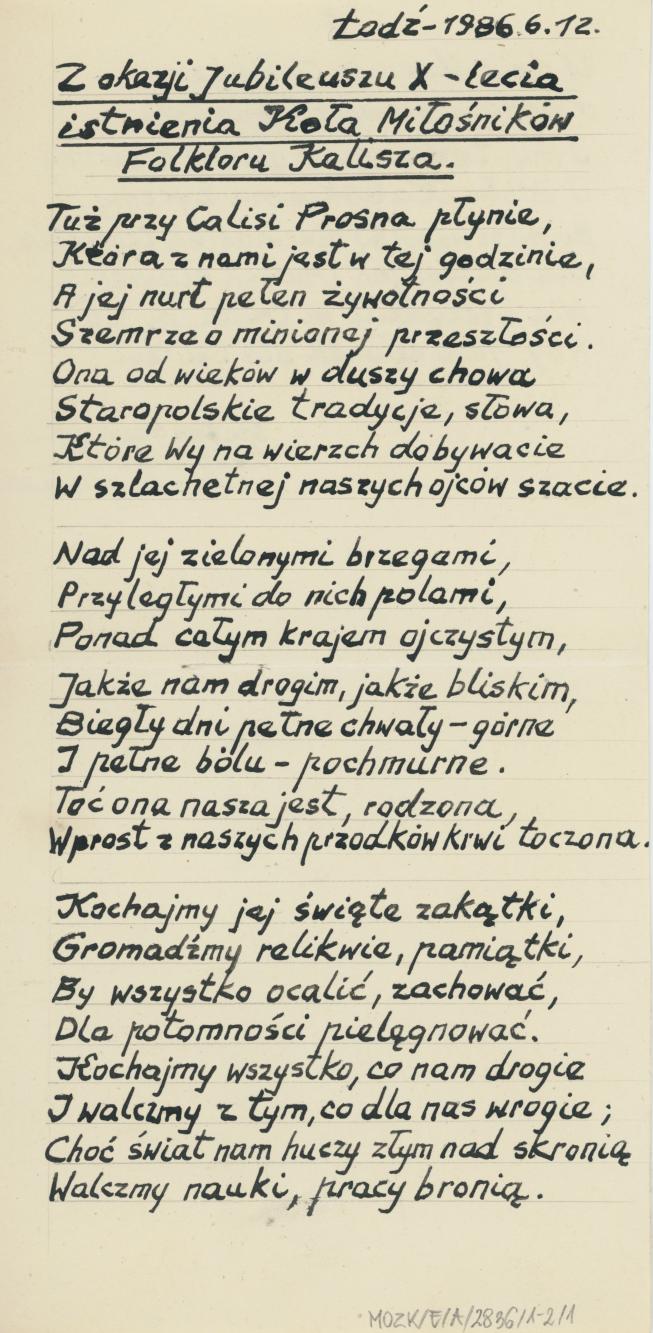 Łódź-1986.6.12.
Z okazji Jubileuszu X-lecia
istnienia Koła Miłośników
Folkloru Kalisza.
Tuż przy Calisi Prosna płynie,
Która z nami jest w tej godzinie,
A jej nurt pełen żywotności
Szemrze o minionej przeszłości.
Ona od wieków w duszy chowa
Staropolskie tradycje, słowa,
Które Wy na wierzch dobywacie
W szlachetnej naszych ojców szacie.
Nad jej zielonymi brzegami,
Przyległymi do nich polami,
Ponad całym krajem ojczystym,
Jakże nam drogim, jakże bliskim,
Biegły dni pełne chwały - górne
I pełne bólu - pochmurne.
Toć ona nasza jest, rodzona,
Wprost z naszych przodków krwi toczona.
Kochajmy jej święte zakątki,
Gromadźmy relikwie, pamiątki,
By wszystko ocalić, zachować,
Dla potomności pielęgnować.
Kochajmy wszystko, co nam drogie
I walczmy z tym, co dla nas wrogie;
Choć świat nam huczy złym nad skronią
Walczmy nauki, pracy bronią.
MOZK/E/A/2836/1-2/1